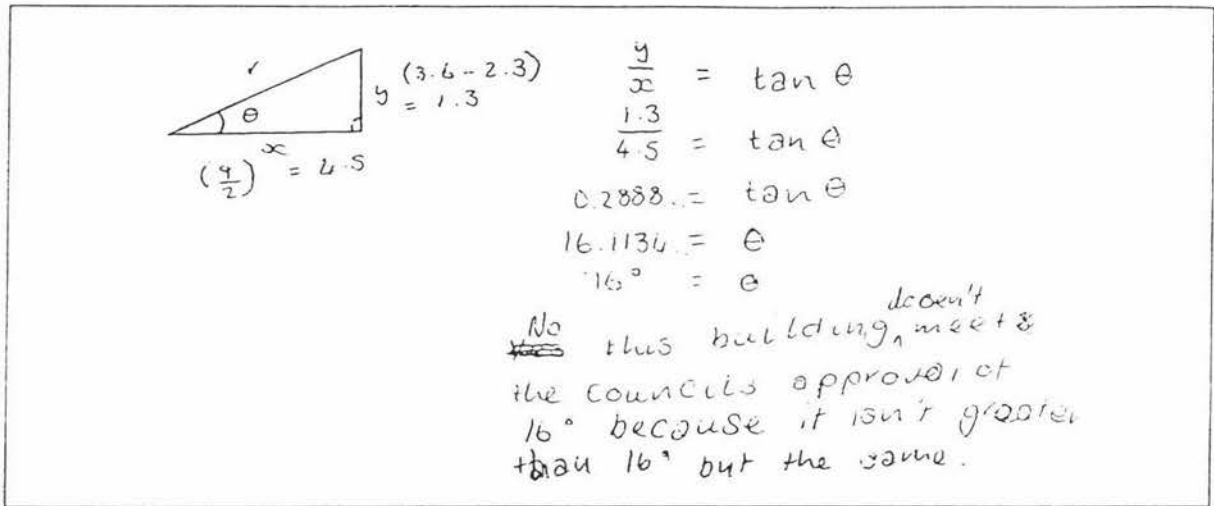 r
θ
y (3.6 - 2.3)
= 1.3
x
(9/2) = 4.5
y/x = tan θ
1.3/4.5 = tan θ
0.2888.. = tan θ
16.1134 = θ
16° = θ
No this building doesn't meets
the councils approval of
16° because it isn't greater
than 16° but the same.